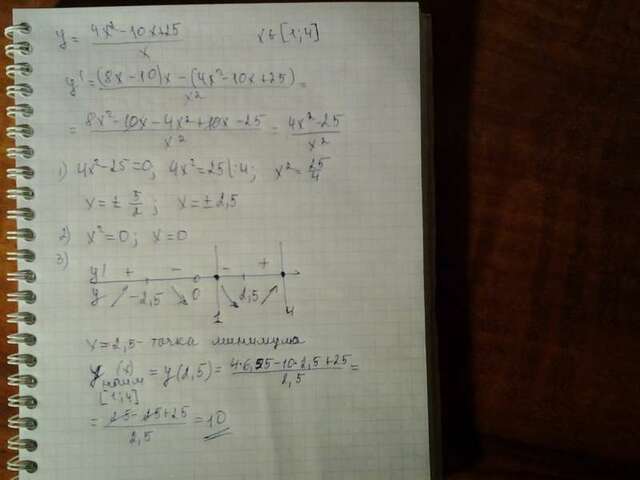 y = (4x²-10x+25)/x x ∈ [1;4]
y' = ((8x-10)x-(4x²-10x+25))/x² =
= (8x²-10x-4x²+10x-25)/x² = (4x²-25)/x²
1) 4x²-25=0; 4x²=25|:4; x²=25/4
x=±5/2; x=±2,5
2) x²=0; x=0
3)
y' + - - +
y -2,5 0 2,5
1 4
x=2,5- точка минимума
y наим (x) = y(2,5) = (4·6,25-10·2,5+25)/2,5 =
[1;4]
= (25-25+25)/2,5 = 10